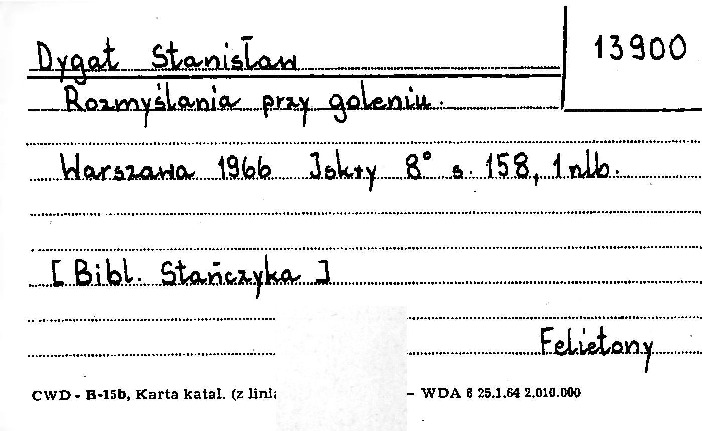 Dygat Stanisław
13900
Rozmyślania przy goleniu.
Warszawa 1966 Iskry 8° s. 158, 1 nlb.
[Bibl. Stańczyka]
Felietony
CWD - B-15b, Karta katal. (z lini – WDA 6 25.1.64 2.010.000